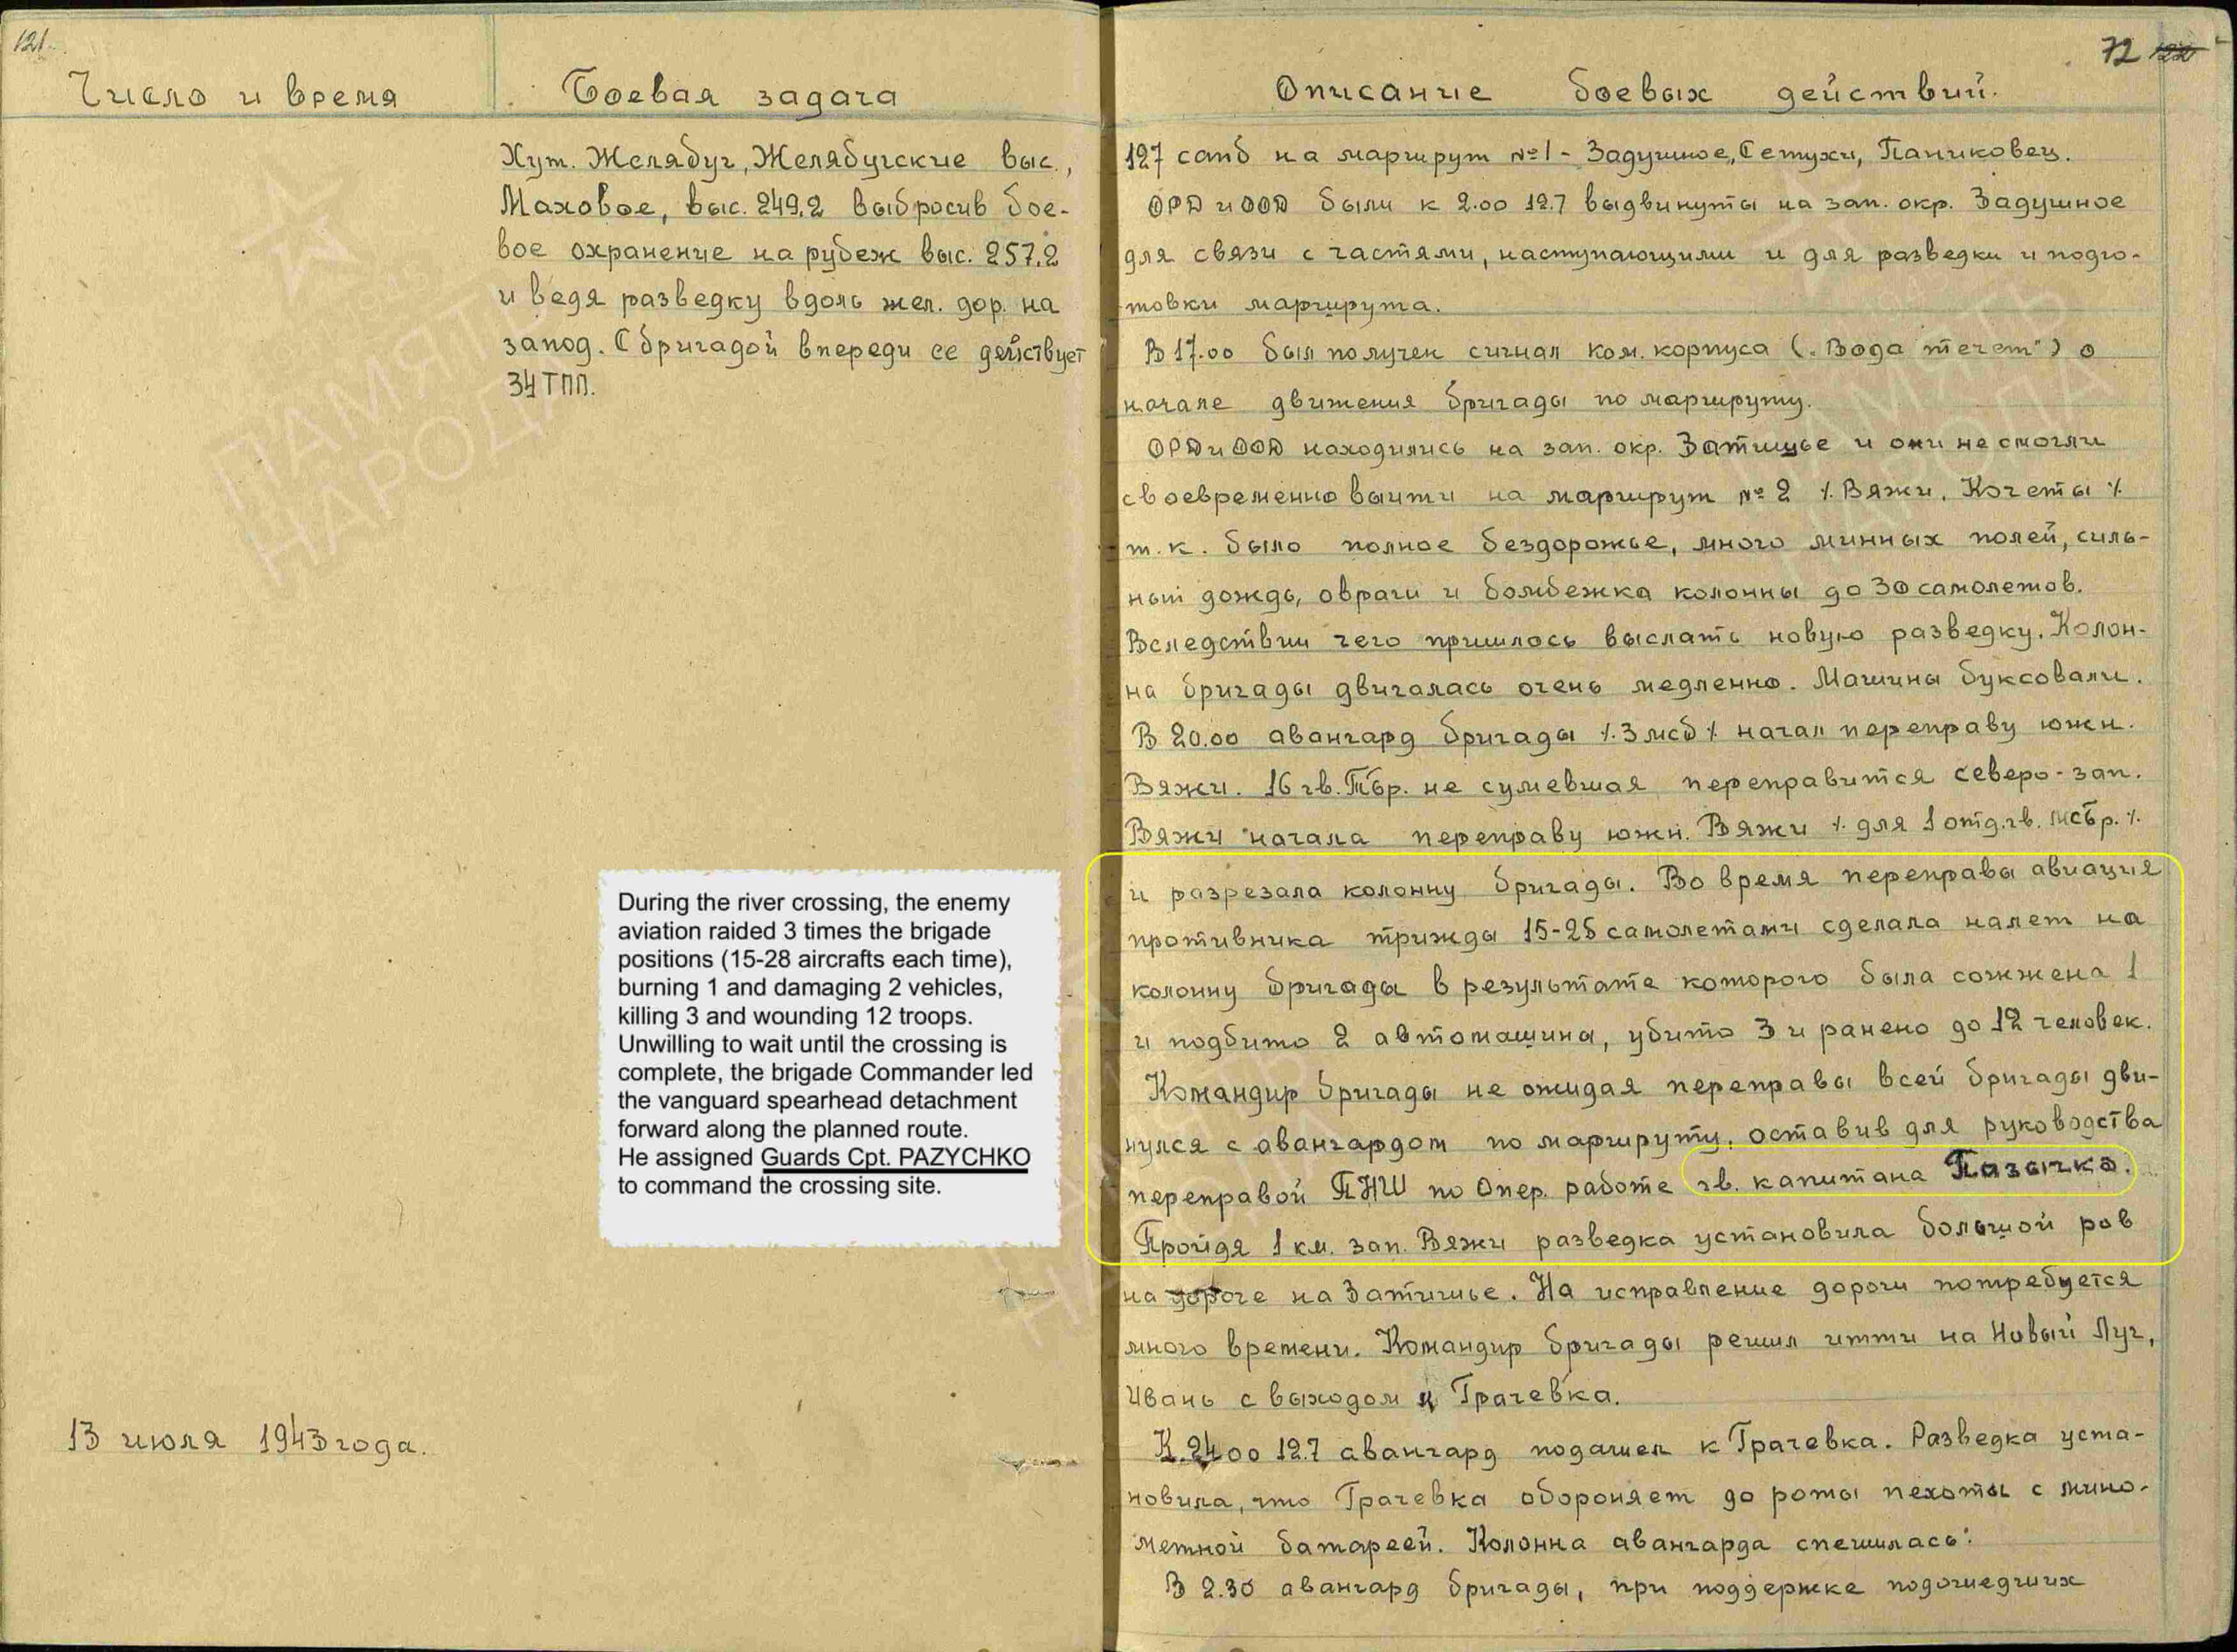 121
Число и время
Боевая задача
Хут. Желябуг, Желябугские выс.,
Маховое, выс. 249,2 выбросив бое-
вое охранение на рубеж выс. 257,2
и ведя разведку вдоль жел. дор. на
запад. С бригадой впереди ее действует
34 ТПП.
During the river crossing, the enemy
aviation raided 3 times the brigade
positions (15-28 aircrafts each time),
burning 1 and damaging 2 vehicles,
killing 3 and wounding 12 troops.
Unwilling to wait until the crossing is
complete, the brigade Commander led
the vanguard spearhead detachment
forward along the planned route.
He assigned Guards Cpt. PAZYCHKO
to command the crossing site.
13 июля 1943 года.
72 122
Описание боевых действий.
127 сапб на маршрут №1 - Задушное, Сетухи, Паниковец.
ОРД и ООД были к 2.00 12.7 выдвинуты на зап. окр. Задушное
для связи с частями, наступающими и для разведки и подго-
товки маршрута.
В 17.00 был получен сигнал ком. корпуса („Вода течет") о
начале движения бригады по маршруту.
ОРД и ООД находились на зап. окр. Затишье и они не смогли
своевременно выйти на маршрут №2 ./. Вяжи, Кочеты ./.
т.к. было полное бездорожье, много минных полей, силь-
ный дождь, овраги и бомбежка колонны до 30 самолетов.
Вследствии чего пришлось выслать новую разведку. Колон-
на бригады двигалась очень медленно. Машины буксовали.
В 20.00 авангард бригады ./. 3 мсб ./. начал переправу южн.
Вяжи. 16 гв. Тбр. не сумевшая переправится северо-зап.
Вяжи начала переправу южн. Вяжи ./. для 1 отд. гв. мсбр. ./.
и разрезала колонну бригады. Во время переправы авиация
противника трижды 15-25 самолетами сделала налет на
колонну бригады в результате которого была сожжена 1
и подбито 2 автомашины, убито 3 и ранено до 12 человек.
Командир бригады не ожидая переправы всей бригады дви-
нулся с авангардом по маршруту, оставив для руководства
переправой ПНШ по Опер. работе гв. капитана Пазычко.
Пройдя 1 км. зап. Вяжи разведка установила большой ров
на дороге на Затишье. На исправление дороги потребуется
много времени. Командир бригады решил итти на Новый Луг,
Ивань с выходом к Грачевка.
К 24.00 12.7 авангард подошел к Грачевка. Разведка уста-
новила, что Грачевка обороняет до роты пехоты с мино-
метной батареей. Колонна авангарда спешилась.
В 2.30 авангард бригады, при поддержке подошедших
ПАМЯТЬ
НАРОДА
ПАМЯТЬ
НАРОДА